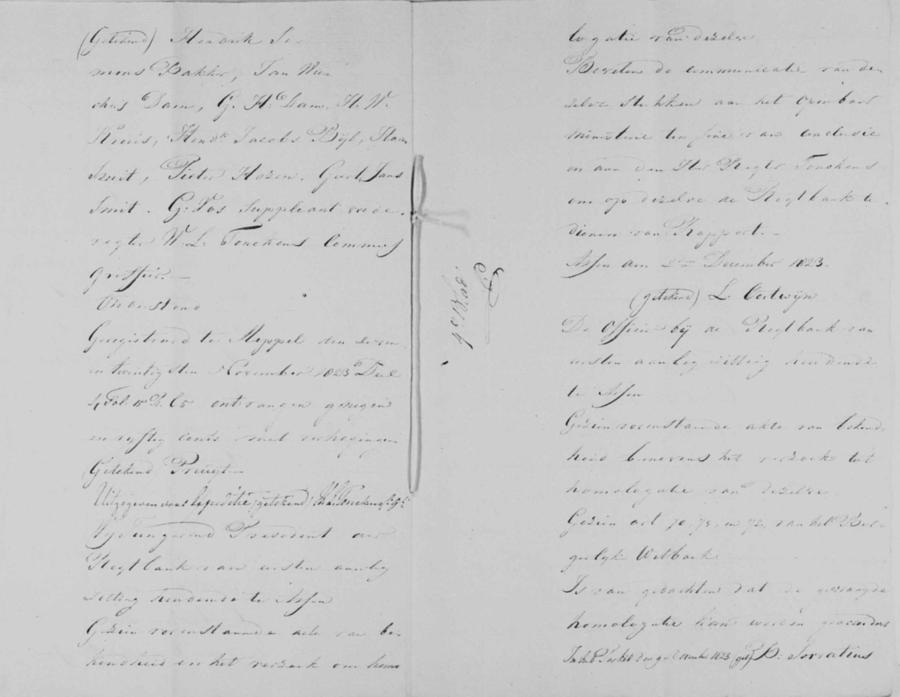 (Getekend) Hendrik Si-
mons Bakker, Jan Wie
chers Dam, G. H. Dam, H. W.
Kruis, Hend.k Jacobs Bijl, Harm
Smit, Pieter Hozen, Geert Jans
Smit. G. Vos Suppleant vrede-
regter W. L. Tonckens Commies
Griffier
Onderstond
Geregistreerd te Meppel den zeven
en twintigsten November 1823 Deel
4 Fol. 15 ontvangen
en vyftig cents met verhooging
Getekend
Uitgegeven voor expeditie (getekend) Tonckens
Wij President der
Regtbank van eersten aanleg
zitting houdende te Assen
Gezien voorenstaande acte van be-
kendheid en het verzoek om homo
logatie van dezelve
Bevelen de communicatie van de
zelve stukken aan het openbaar
ministerie ten fine van conclusie
en aan den Heer Regter Tonckens
om op dezelve de Regtbank te
dienen van Rapport.-
Assen den 2en December 1823.
(getekend) L. Oortwijn
De Officier bij de Regtbank van
eersten aanleg zitting houdende
te Assen
Gezien voorenstaande akte van bekend
heid benevens het verzoek tot
homologatie van dezelve.
Gezien art 70, 71, en 72, van het Bur-
gerlijk Wetboek
Is van gedachten dat de gevraagde
homologatie kan worden geaccordeerd
In het Parket den 9 December 1823 (get) P. Sorratius